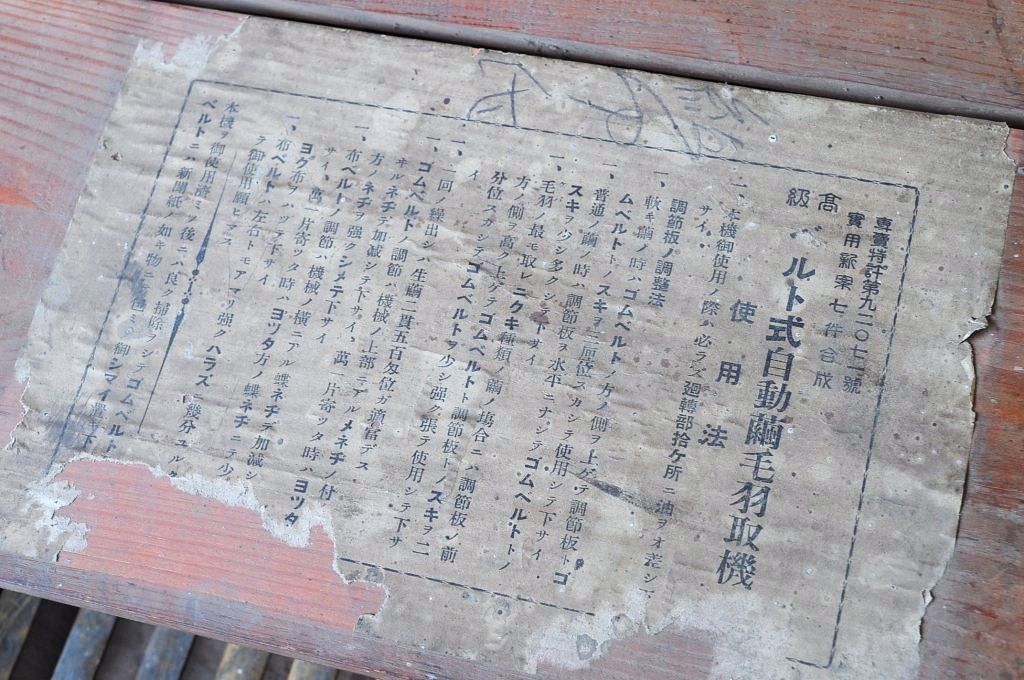 專賣特許第九二〇七一號
實用新案七件合成
高級 ベルト式自動繭毛羽取機
使用法
一、本機御使用ノ際ハ必ラズ廻轉部拾ケ所ニ油ヲオ差シ
サイ、
調節板ノ調整法
一、軟キ繭ノ時ハゴムベルトノ方ノ側ヲ上ゲテ調節板トゴ
ムベルトトノスキヲ二厘位スカシテ使用シテ下サイ、
一、普通ノ繭ノ時ハ調節板ヲ水平ニナシテゴムベルトトノ
スキヲ少シ多クシテ下サイ
一、毛羽ノ最モ取レニクキ種類ノ繭ノ場合ニハ調節板ノ前
方ノ側ヲ高ク上ゲテゴムベルトト調節板トノスキヲ二
分位スカシテゴムベルトヲ少シ强ク張テ使用シテ下サ
イ
一、一回ノ繰出シハ生繭二貫五百匁位ガ適當デス
一、ゴムベルトノ調節ハ機械ノ上部ニアルメネチノ付
キルネチデ加減シテ下サイ、萬一片寄ツタ時ハヨツタ
方ノネヲ强クシメテ下サイ
一、布ベルトノ調節ハ機械ノ橫ニアル蝶ネチデ加減シ
サイ、萬一片寄ツタ時ハヨツタ方ノ蝶ネチニテ少シ
ヨグ布ヲハツテ下サイ
一、布ベルトハ左右トモアマリ强クハラズニ幾分ユルク
ラ御使用願ヒマス
本機ヲ御使用濟ミノ後ニハ良ク掃除ヲシテゴムベルト
ベルトニハ新聞紙ノ如キ物ニ 色 御シマイ置キ下